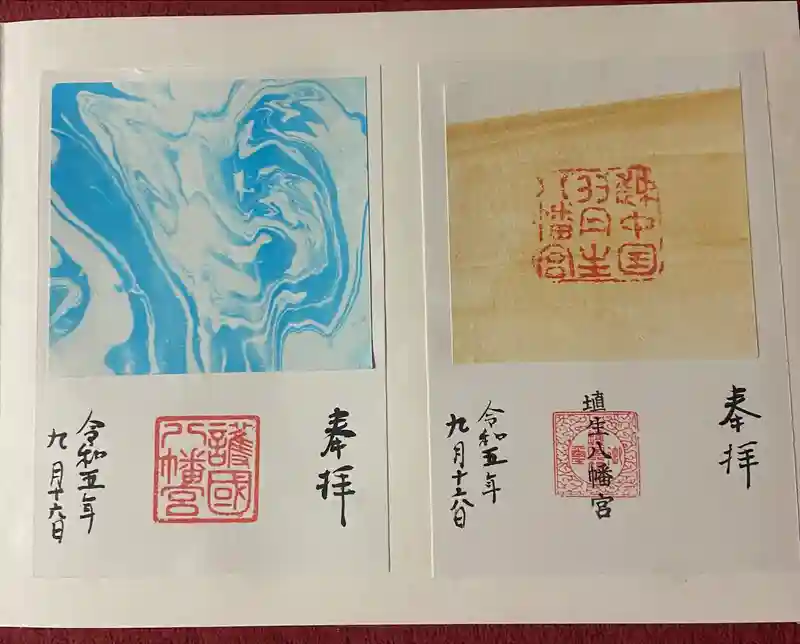 奉拝
埴生八幡宮
令和五年
九月十六日
八幡宮
奉拝
護國
八幡宮
令和五年
九月十六日